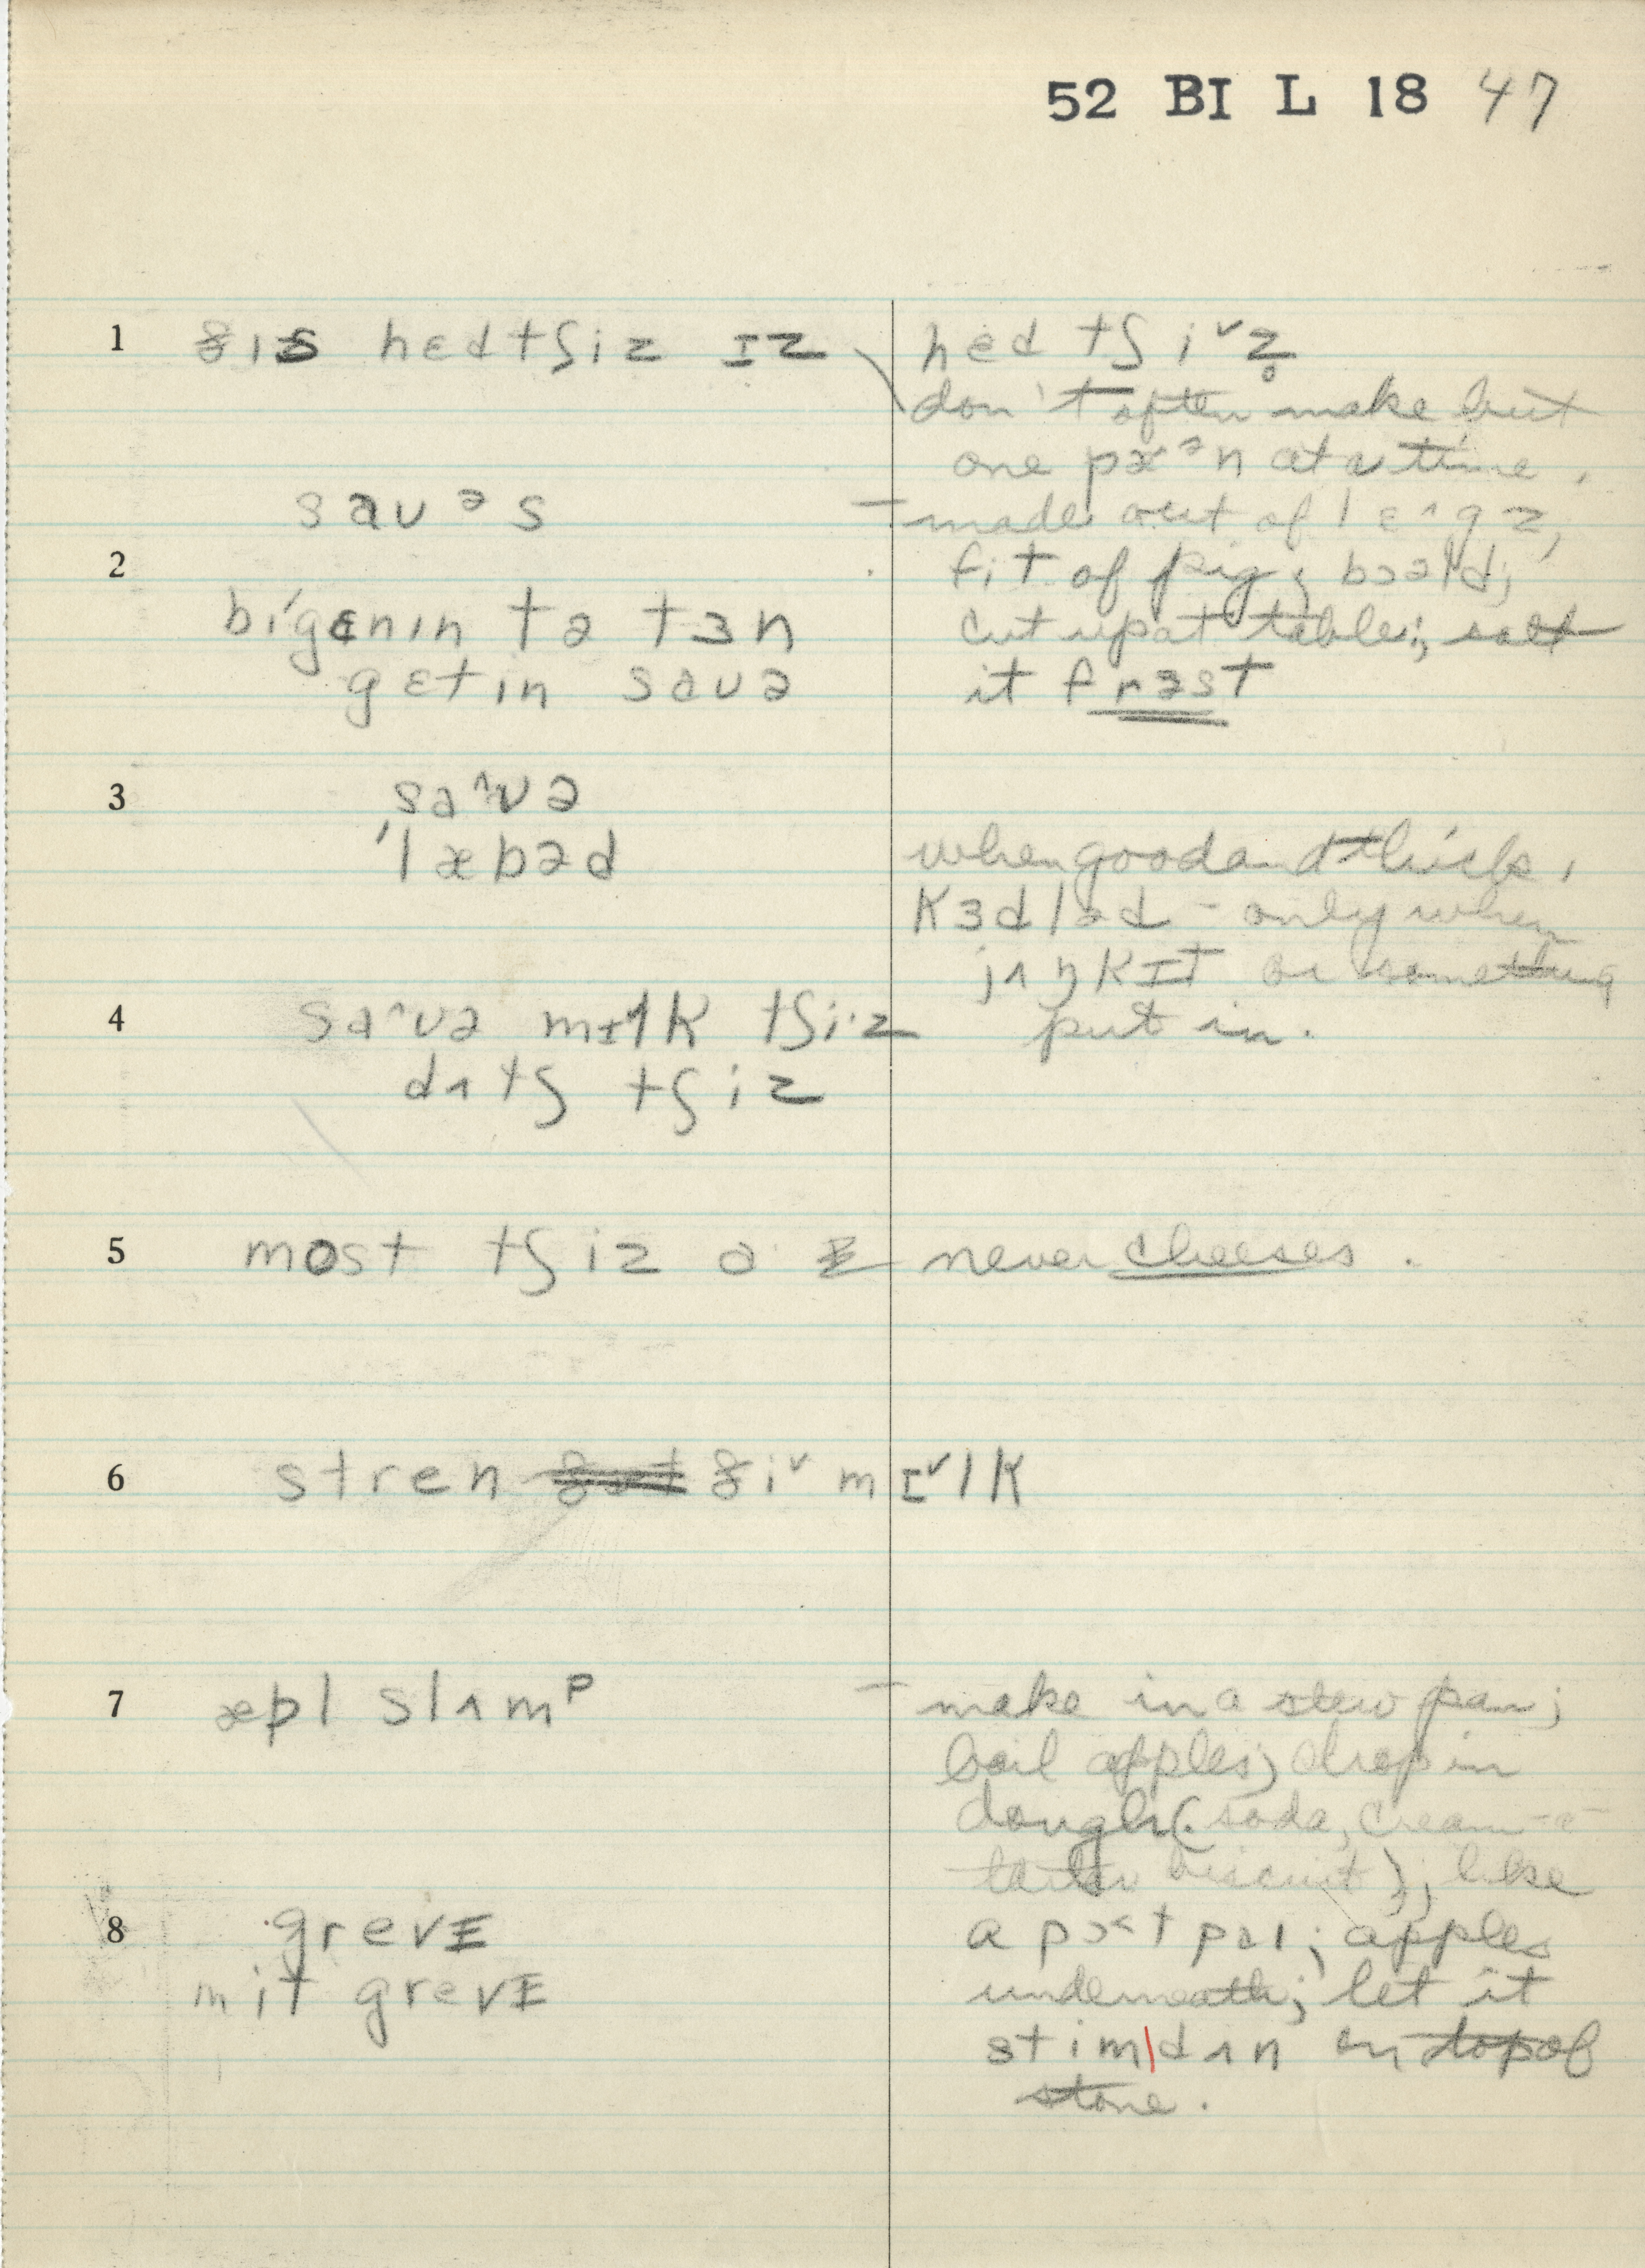 52 BI L 18 47
1 ðɪs hɛdtʃiz ɪz
hɛd tʃiˇz̥
don't often make but
one pæᵊn at a time,
saʊᵊs
made out of lɛ^gz,
2
fit of pig; bɔəld;
bígɛnɪn tə tɜn
cut up at table; salt
gɛtɪn saʊə
it frəst
3 sa^ʊə
ˈlæbəd
when good and thick,
kɜdləd - only when
jʌŋkɪt or something
4 sa^ʊə mɪlk tʃi·z
put in.
dʌtʃ tʃiz
5 most tʃiz ə
never cheeses.
6 stren ðiˇ mɪˇlk
7 æpl slʌmᵖ
make in a stew pan;
boil apples; drop in
dough (soda, cream-a-
tartar biscuit); like
8 grevɪ
a pɔ˂t paɪ; apples
mit grevɪ
underneath; let it
stim|dʌn on top of
stove.